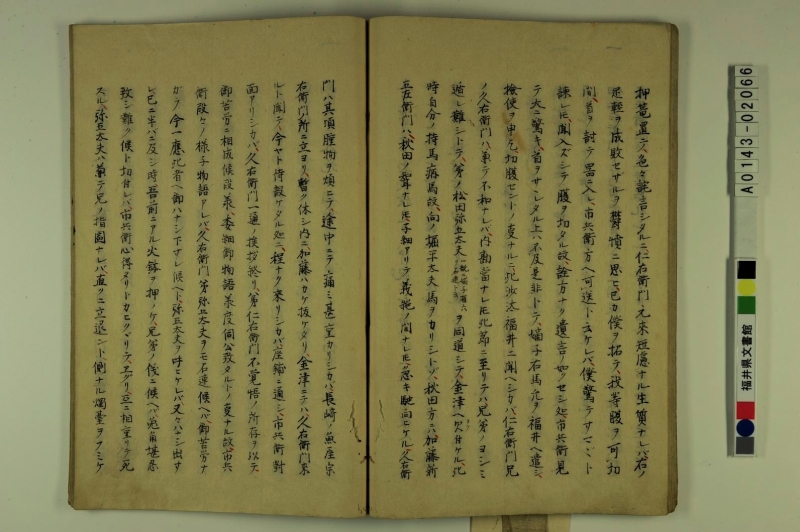 押篭置テ、色々詫言シタルニ仁右衛門元来短慮ナル生質ナレバ右ノ
足軽ヲ成敗セザルヲ欝憤ニ思ヒ已カ僕ヲ拓テ、我等腹ヲ可切
間首ヲ討テ器ニ入レ、市兵衛方ヘ可送ト云ケレバ、僕驚テサマ〴〵ト
諫レ𪜈聞入ズシテ腹ヲ切タル故、詮方ナク遺言ノ如クセシ処市兵衛見
テ大ニ驚キ、首ヲサシタル上ハ不及是非トテ、嫡子右馬允ヲ福井ヘ遣シ、
検使ヲ申乞切腹セントノ事ナルニ、此沙汰福井ニ聞ヘシカバ、仁右衛門兄
ノ久右衛門ハ兼テ不和ナレバ、内勘当ナレ𪜈此節ニ至リテハ兄弟ノヨシミ
遁レ難シトテ、弟ノ松田弥五太夫ヲ同道シテ、金津ヘ欠付ケル、此
時自分ノ持馬痛馬故、向ノ堀子太夫馬ヲカリシトゾ、秋田方ニハ加藤新
五左衛門ハ、秋田ノ聟ナレ𪜈子細アリテ義絶ノ間ナレ𪜈急キ馳向ヒケル、久右衛
門ハ其頃腫物ヲ煩ニテ、途中ニテ痛ミ甚重カリシカバ、長崎ノ魚屋宗
右衛門所ニ立ヨリ、暫ク休シ内ニ、加藤ハカケ抜ケタリ金津ニテハ久右衛門来
ルト聞テ、今ヤト待設ケタル処ニ、程ナク来リシカバ座鋪ニ通シ、市兵衛対
面アリシカバ、久右衛門一通ノ挨拶終リ、弟仁右衛門不覚悟ノ所存ヲ以テ、
御苦労ニ相成候段承、委細御物語承度伺公致タルトノ事ナル故、市兵
衛段々ノ様子物語アレバ、久右衛門弟弥五太夫ヲモ召連候ヘバ、御苦労ナ
ガラ今一應此者ヘ御ハナシ下サレ候ヘト、弥五太夫ヲ呼ビケレバ又々ハナシ出サ
レ已ニ半バニ及シ時、吾前ニアル火鉢ヲ押ノケ、兄弟ノ儀ニ候ヘバ
致シ難ク候ト切付レバ、市兵衛心得タリト
スル、弥五太夫ハ兼テ兄ノ指図ナレバ直クニ立退ント側ナル燭臺ヲフミケ
A0143-02066
福井県文書館